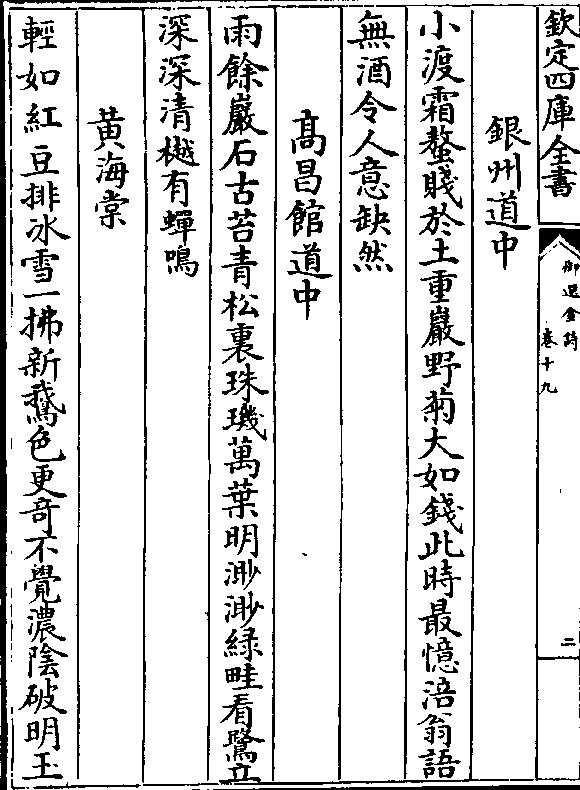 欽定四庫全書
御選金詩
卷十九
二
銀州道中
小渡霜螯賤於土重巖野菊大如錢此時最憶涪翁語
無酒令人意缺然
高昌館道中
雨餘巖石古苔青松裏珠璣萬葉明渺渺緑畦看鷺立
深深清樾有蟬鳴
黄海棠
輕如紅豆排冰雪一拂新鵞色更奇不覺濃陰破明玉